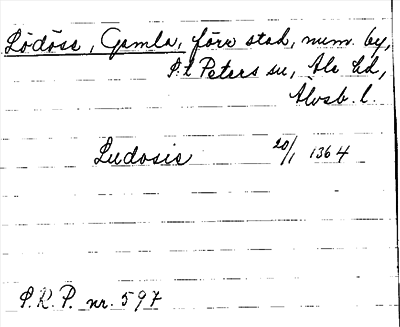 Lödöse, Gamla, förr stad, num. by,
S:t Peters sn, Ale hd,
Älvsb. l.
Ludosis 20/1 1364
S.R.P. nr. 597